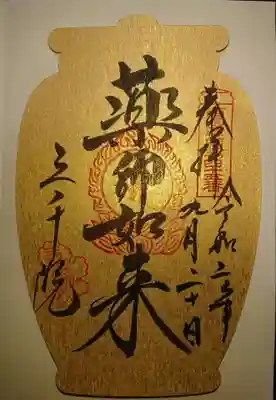 奉拝
令和三年
九月二十日
薬師如来
三千院